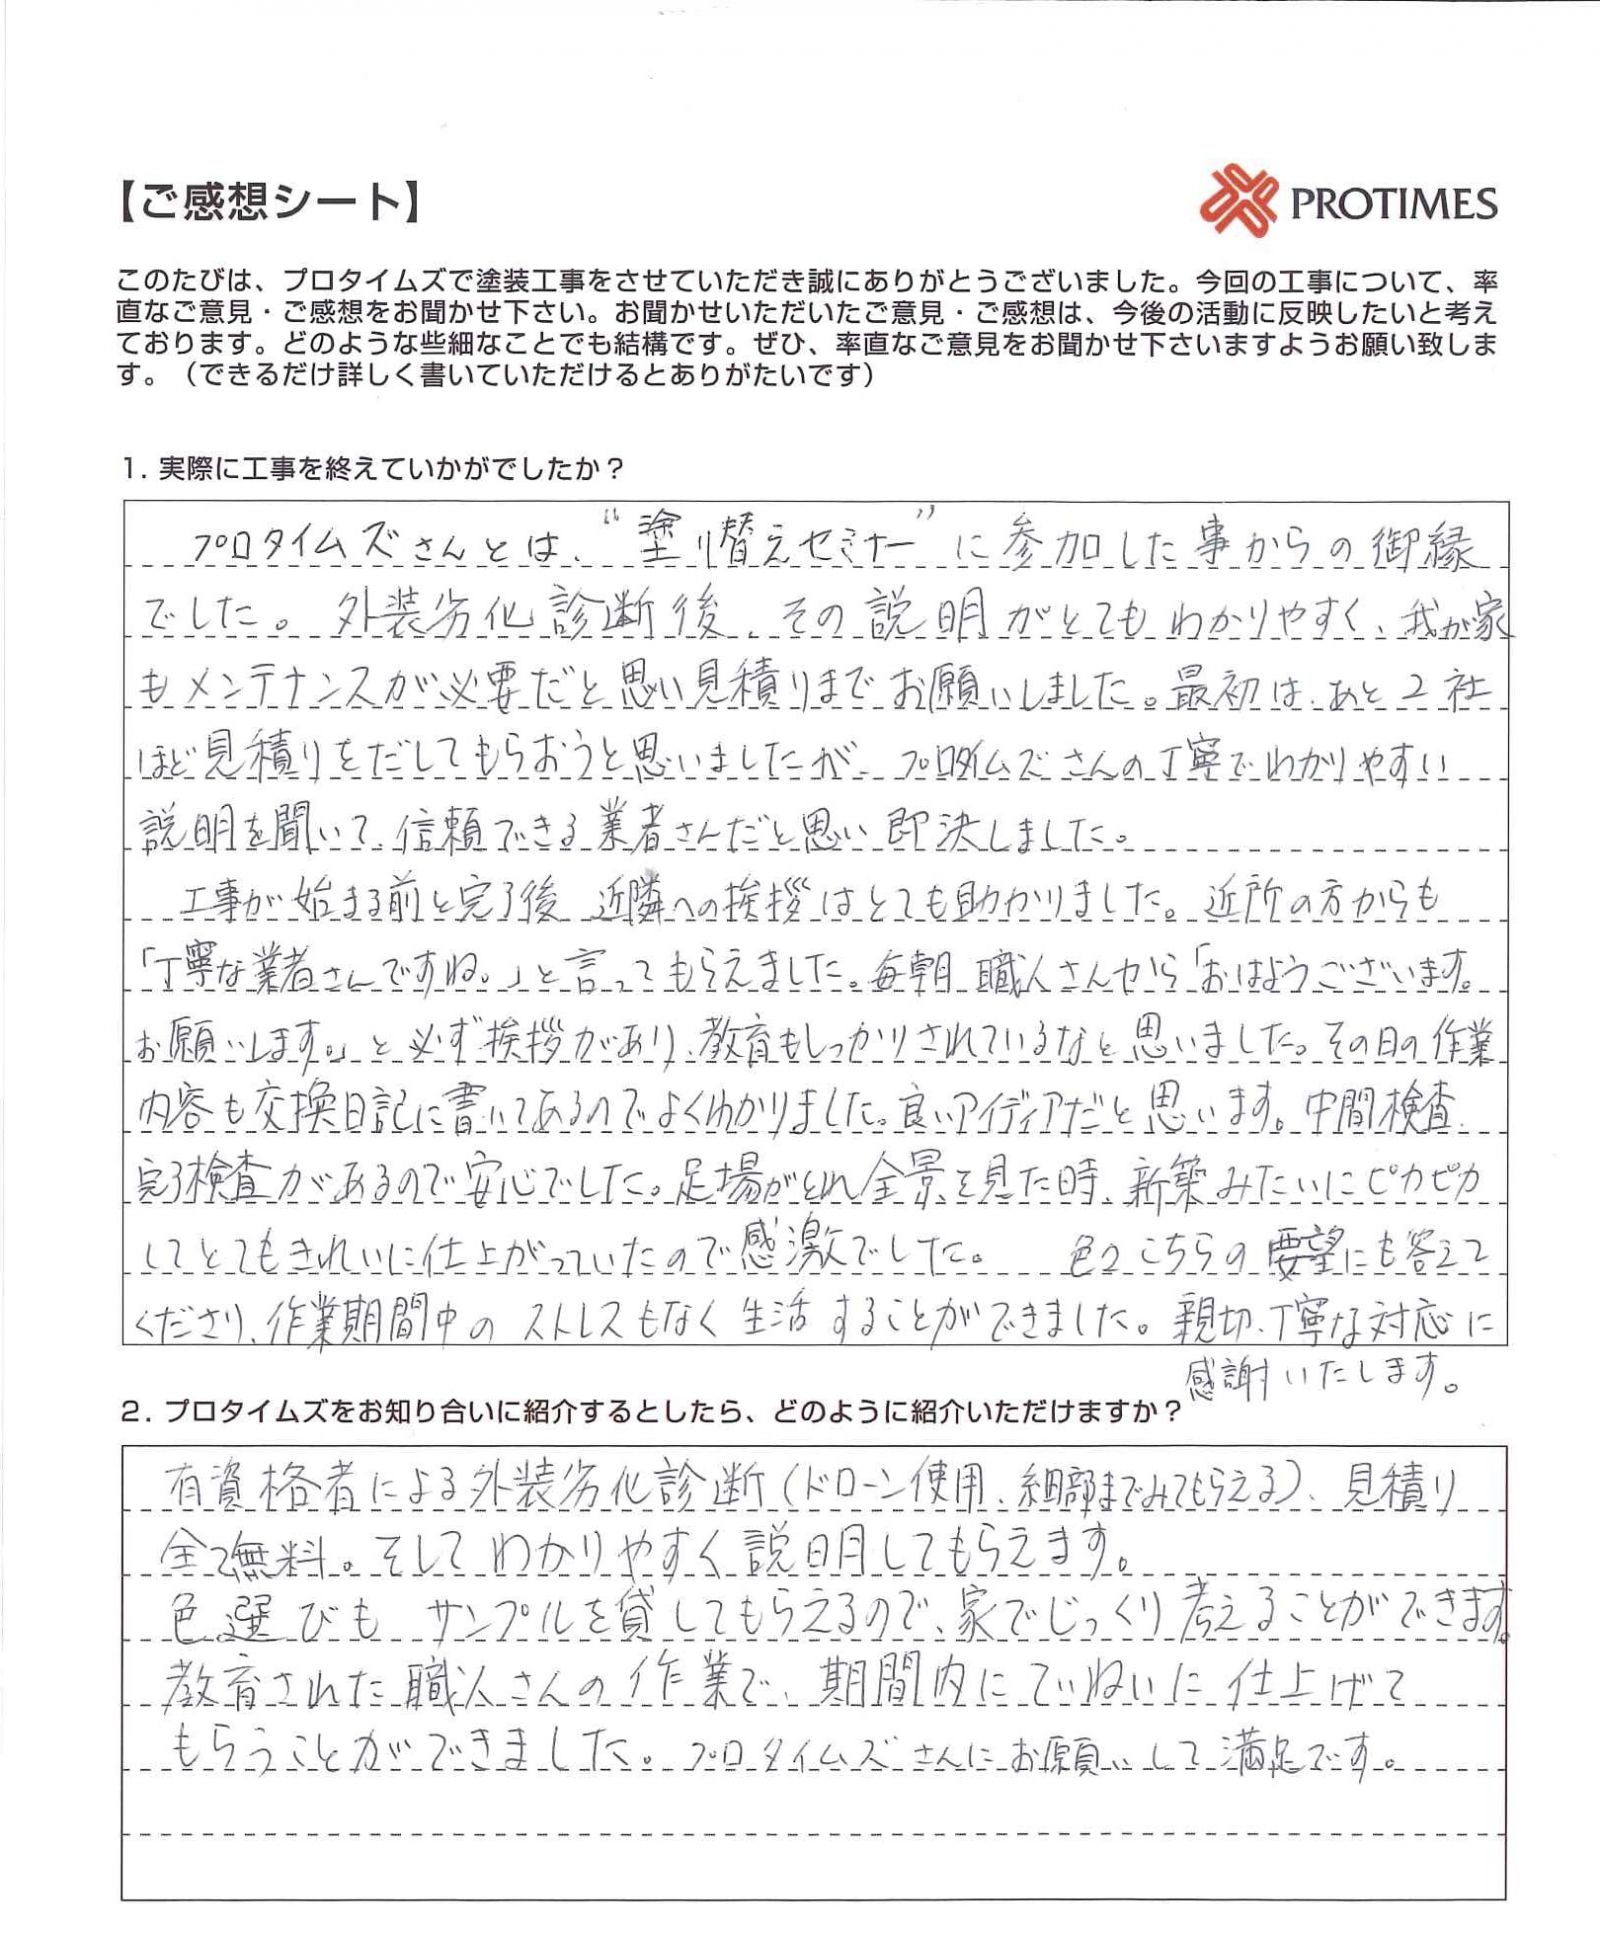 【ご感想シート】
PROTIMES
このたびは、プロタイムズで塗装工事をさせていただき誠にありがとうございました。今回の工事について、率
直なご意見・ご感想をお聞かせ下さい。お聞かせいただいたご意見・ご感想は、今後の活動に反映したいと考え
ております。どのような些細なことでも結構です。ぜひ、率直なご意見をお聞かせ下さいますようお願い致しま
す。（できるだけ詳しく書いていただけるとありがたいです）
1. 実際に工事を終えていかがでしたか？
プロタイムズさんとは、“塗り替えセミナー”に参加した事からの御縁
でした。外装劣化診断後、その説明がとてもわかりやすく、我が家
もメンテナンスが必要だと思い見積りまでお願いしました。最初は、あと2社
ほど見積りをだしてもらおうと思いましたが、プロタイムズさんの丁寧でわかりやすい
説明を聞いて、信頼できる業者さんだと思い即決しました。
工事が始まる前と完了後、近隣への挨拶はとても助かりました。近所の方からも
「丁寧な業者さんですね。」と言ってもらえました。毎朝、職人さんから「おはようございます。
お願いします。」と必ず挨拶があり、教育もしっかりされているなと思いました。その日の作業
内容も交換日記に書いてあるのでよくわかりました。良いアイディアだと思います。中間検査、
完了検査があるので安心でした。足場がとれ全景を見た時、新築みたいにピカピカ
してとてもきれいに仕上がっていたので感激でした。色々こちらの要望にも答えて
くださり、作業期間中のストレスもなく生活することができました。親切、丁寧な対応に
感謝いたします。
2. プロタイムズをお知り合いに紹介するとしたら、どのように紹介いただけますか？
有資格者による外装劣化診断（ドローン使用、細部までみてもらえる）、見積り
全て無料。そしてわかりやすく説明してもらえます。
色選びもサンプルを貸してもらえるので、家でじっくり考えることができます。
教育された職人さんの作業で、期間内にていねいに仕上げて
もらうことができました。プロタイムズさんにお願いして満足です。